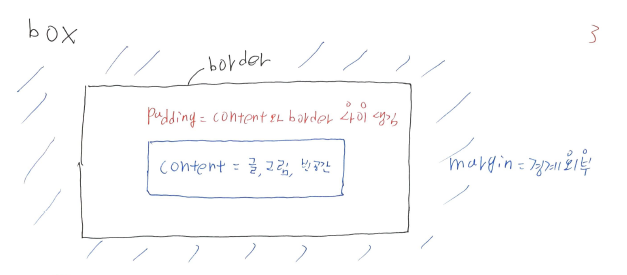 box
3
border
Padding = content와 border 사이 영역
content = 글, 그림, 빈공간
margin = 경계 외부